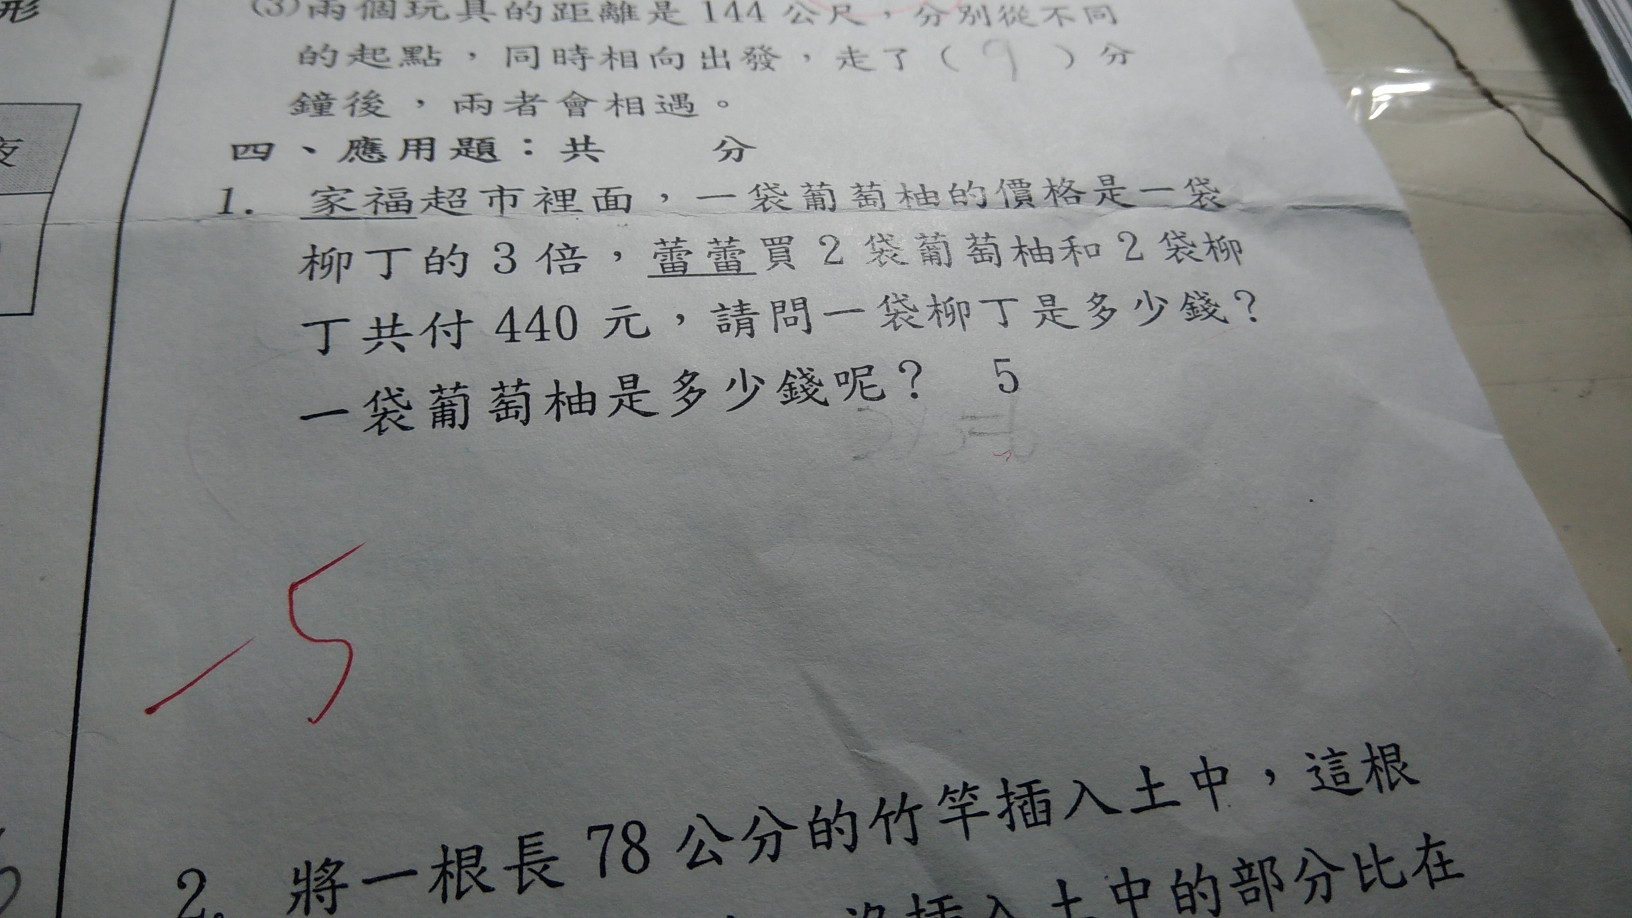 形
(3)兩個玩具的距離是144公尺，分別從不同
的起點，同時相向出發，走了（9）分
鐘後，兩者會相遇。
四、應用題：共　　分
1. 家福超市裡面，一袋葡萄柚的價格是一袋
柳丁的3倍，蕾蕾買2袋葡萄柚和2袋柳
丁共付440元，請問一袋柳丁是多少錢？
一袋葡萄柚是多少錢呢？ 5
-5
2. 將一根長78公分的竹竿插入土中，這根
沒插入土中的部分比在